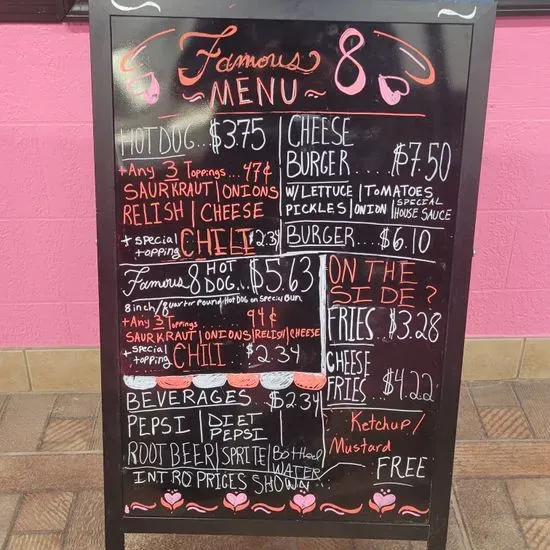 Famous 8
~MENU~
HOT DOG... $3.75
+Any 3 Toppings... 47¢
SAURKRAUT | ONIONS
RELISH | CHEESE
+ special topping CHILI $2.34
CHEESE
BURGER.... $7.50
W/LETTUCE | TOMATOES
PICKLES | ONION | SPECIAL HOUSE SAUCE
BURGER... $6.10
Famous 8 HOT DOG... $5.63
8 inch/Quarter Pound Hot Dog on Special Bun
+Any 3 Toppings... 94¢
SAURKRAUT | ONIONS | RELISH | CHEESE
+ special topping CHILI $2.34
ON THE
SIDE?
FRIES $3.28
CHEESE
FRIES... $4.22
Ketchup/
Mustard
FREE
BEVERAGES $2.34
PEPSI | DIET PEPSI
ROOT BEER | SPRITE | Bottled WATER
INTRO PRICES SHOWN